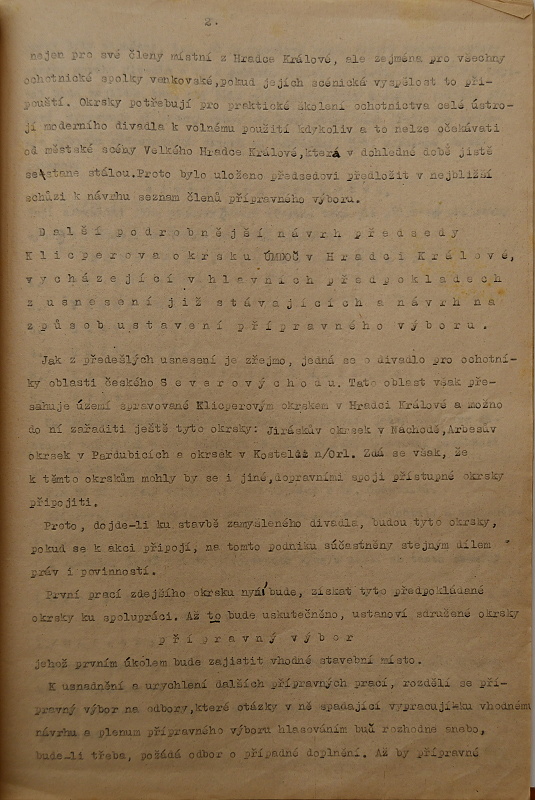 2.
nejen pro své členy místní z Hradce Králové, ale zejména pro všechny
ochotnické spolky venkovské,pokud jejích scénická vyspělost to při-
pouští. Okrsky potřebují pro praktické školení ochotnictva celé ústro-
jí moderního divadla k volnému použití kdykoliv a to nelze očekávati
od městské scény Velkého Hradce Králové,která v dohledné době jistě
se stane stálou.Proto bylo uloženo předsedovi předložit v nejbližší
schůzi k návrhu seznam členů přípravného výboru.
D a l š í p o d r o b n ě j š í n á v r h p ř e d s e d y
K l i c p e r o v a o k r s k u ÚMDOČ v H r a d c i K r á l o v é,
v y c h á z e j í c í v h l a v n í c h p ř e d p o k l a d e c h
z u s n e s e n í j i ž s t á v a j í c í c h a n á v r h n a
z p ů s o b u s t a v e n í p ř í p r a v n é h o v ý b o r u .
Jak z předešlých usnesení je zřejmo, jedná se o divadlo pro ochotní-
ky oblasti českého S e v e r o v ý c h o d u. Tato oblast však pře-
sahuje území spravované Klicperovým okrskem v Hradci Králové a možno
do ní zařaditi ještě tyto okrsky: Jiráskův okrsek v Náchodě,Arbesův
okrsek v Pardubicích a okrsek v Kostelci n/Orl. Zdá se však, že
k těmto okrskům mohly by se i jiné,dopravními spoji přístupné okrsky
připojiti.
Proto, dojde-li ku stavbě zamýšleného divadla, budou tyto okrsky,
pokud se k akci připojí, na tomto podniku súčastněny stejným dílem
práv i povinností.
První prací zdejšího okrsku nyní bude, získat tyto předpokládané
okrsky ku spolupráci. Až to bude uskutečněno, ustanoví sdružené okrsky
p ř í p r a v n ý v ý b o r
jehož prvním úkolem bude zajistit vhodné stavební místo.
K usnadnění a urychlení dalších přípravných prací, rozdělí se pří-
pravný výbor na odbory,které otázky v ně spadající vypracují ku vhodnému
návrhu a plenum přípravného výboru hlasováním buď rozhodne anebo,
bude-li třeba, požádá odbor o případné doplnění. Až by přípravné